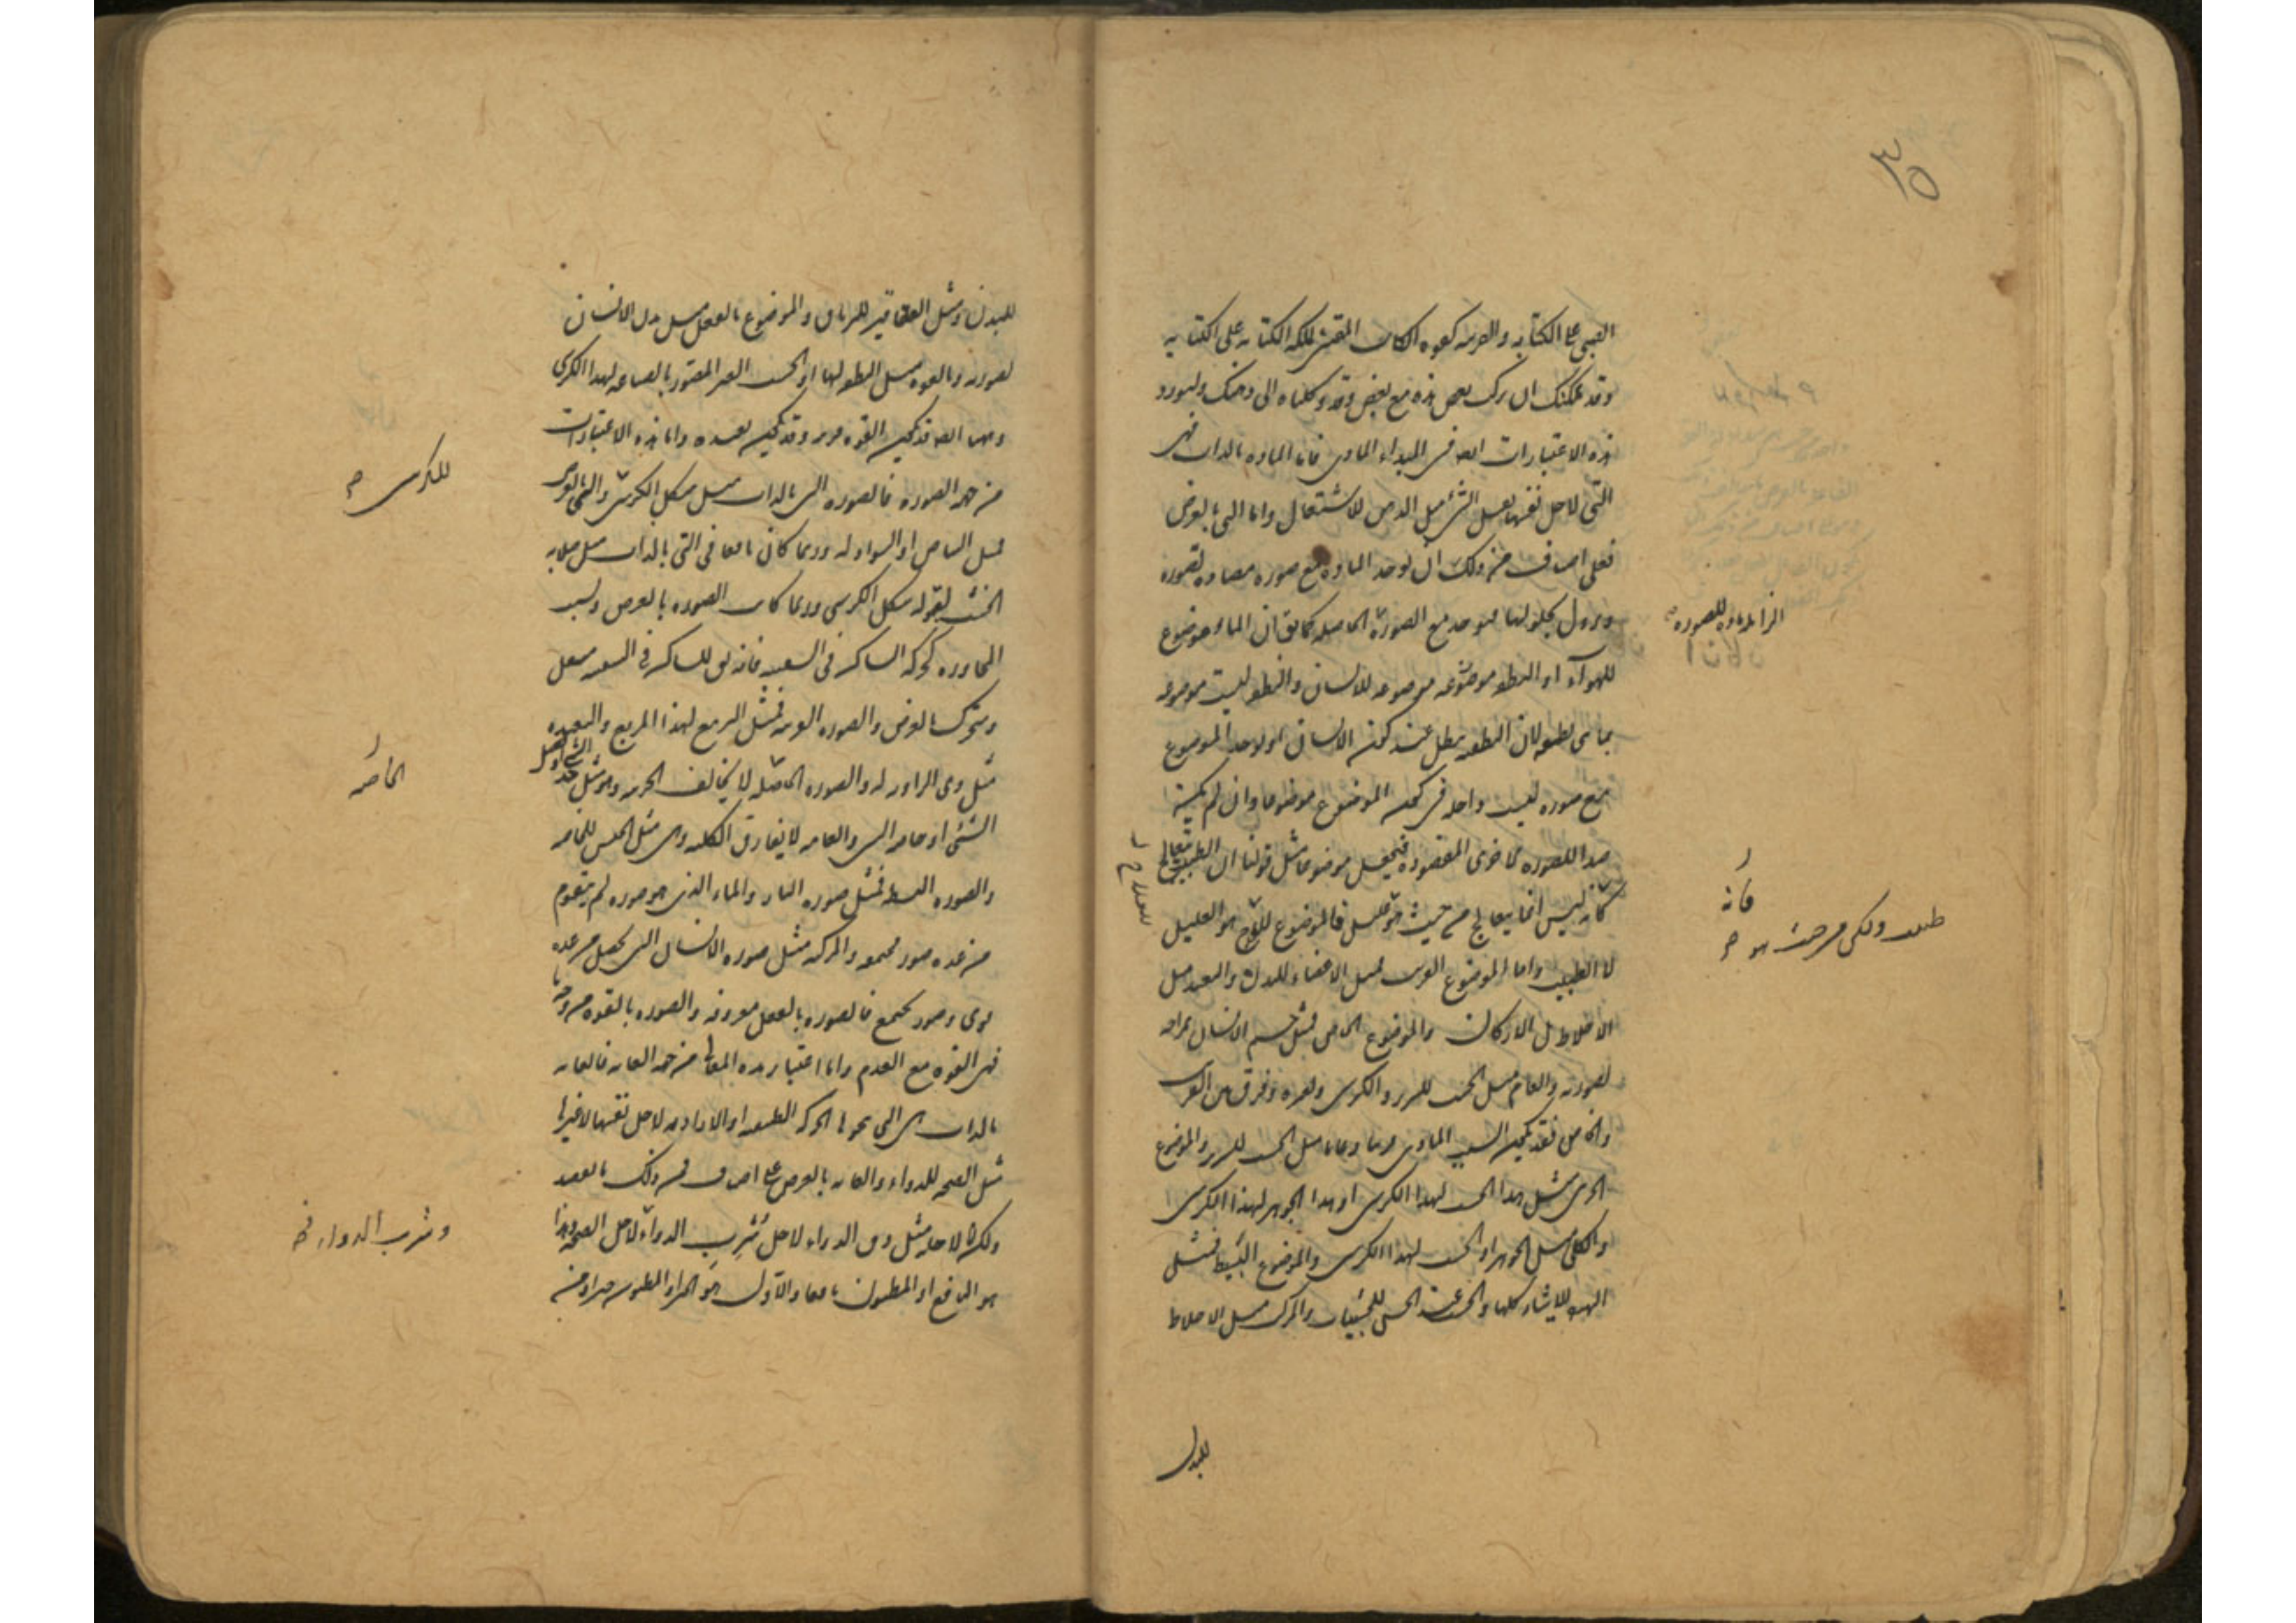 ٣٥
الصبى على الكتابة والقريبة كقوة الكاتب المقتنى لملكة الكتابة على الكتابة
وقد يمكنك ان تركب بعض هذه مع بعض وقد وكلناه الى ذهنك ولنورد
هذه الاعتبارات ايضا فى المبداء المادى فاما المادة بالذات فهى
التى لاجل نفسها تقبل الشئ مثل الدهن للاشتعال واما التى بالعرض
فعلى اصناف من ذلك ان توجد المادة مع صورة مضادة لصورة
وتزول بحلولها فتوجد مع الصورة الحاصلة كما يق ان الماء موضوع
للهواء او النطفة موضوعة للانسان والنطفة ليست موضوعة
بما هى نطفة لان النطفة تبطل عند كون الانسان او لاخذ الموضوع
مع صورة ليست داخلة فى كون الموضوع موضوعا وان لم يكن
ضدا للصورة الاخرى المقصودة فيجعل موضوعا مثل قولنا ان الطبيب يتعالج
فانه ليس انما يعالج من حيث هو عليل فالموضوع للعلاج هو العليل
لا الطبيب واما الموضوع القريب فمثل الاعضاء للبدن والبعيد مثل
الاخلاط بل الاركان والموضوع الخاص فمثل جسم الانسان بمزاجه
لصورته والعام مثل الخشب للسرير والكرسى ولغيره وفرق بين القريب
والخاص فقد يكون السبب المادى قريبا وعاما مثل الخشب للسرير والموضوع
الجزئى مثل هذا الخشب لهذا الكرسى او هذا الجوهر لهذا الكرسى
والكلى مثل الجوهر او الخشب لهذا الكرسى والموضوع البسيط فمثل
الهيولى للاشياء كلها والخشب عند الحس للخشبيات والمركب مثل الاخلاط
للبدن
للصورة
فانه
طبيب ولكن من حيث هو
للبدن ومثل العقاقير للترياق والموضوع بالفعل مثل بدن الانسان
لصورته وبالقوة مثل النطفة لها او الخشب الغير المصور بالصناعة لهذا الكرسى
وههنا ايضا قد تكون القوة قريبة وقد تكون بعيدة واما هذه الاعتبارات
من جهة الصورة فالصورة التى بالذات مثل شكل الكرسى والتى بالعرض
فمثل البياض او السواد له وربما كان نافعا فى التى بالذات مثل صلابة
الخشب لقبول شكل الكرسى وربما كانت الصورة بالعرض ولسبب
المجاورة كحركة الساكن فى السفينة فانه يق للساكن فى السفينة متنقل
ومتحرك بالعرض والصورة القريبة فمثل التربيع لهذا المربع والبعيدة
مثل ذى الزاوية له والصورة الخاصة لا تخالف الجزئية وهو مثل حد الشئ او فصل
الشئ او خاصة الشئ والعامة لا تفارق الكلية وهى مثل الجنس للخاصة
والصورة البسيطة فمثل صورة النار والماء الذى هو صورة لم تتقوم
من عدة صور مجتمعة والمركبة مثل صورة الانسان التى تحصل من عدة
قوى وصور تجتمع فالصورة بالفعل معروفة والصورة بالقوة من وجه
فهى القوة مع العدم واما اعتبار هذه المعانى من جهة الغاية فالغاية
بالذات هى التى تنحوها الحركة الطبيعية او الارادية لاجل نفسها لا غيرها
مثل الصحة للدواء والغاية بالعرض على اصناف فمن ذلك ما يقصد
ولكن لا لاجله مثل دق الدواء لاجل شرب الدواء لاجل الصحة وهذا
هو النافع او المظنون نافعا والاول هو الخير او المظنون خيرا ومنه
للكرسى
الخاصة
وشرب الدواء